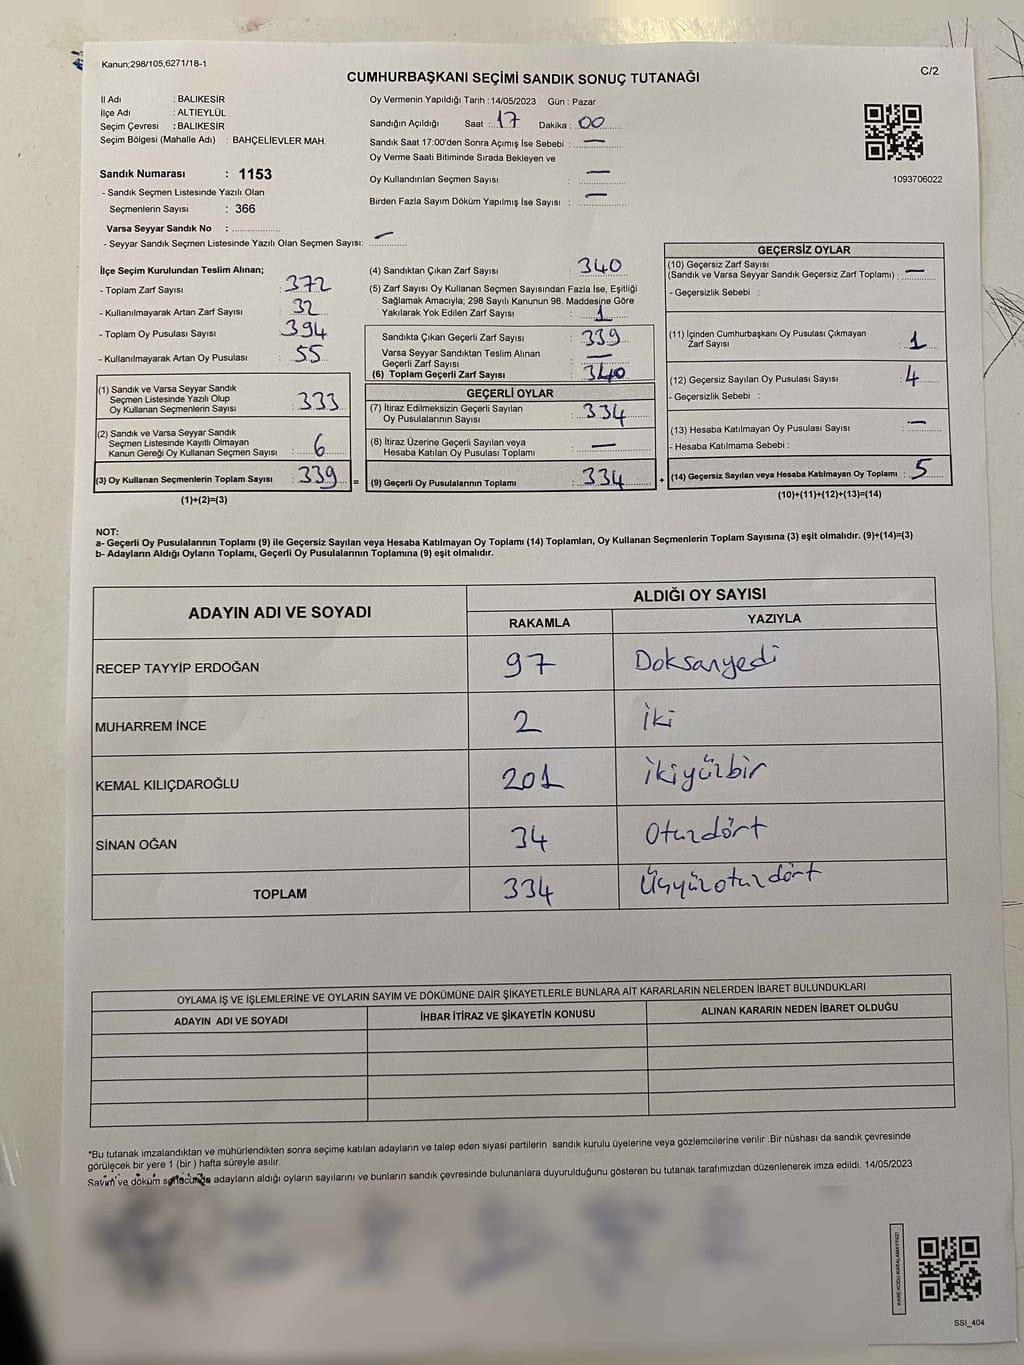 Kanun;298/105,6271/18-1
C/2
CUMHURBAŞKANI SEÇİMİ SANDIK SONUÇ TUTANAĞI
İl Adı : BALIKESİR
İlçe Adı : ALTIEYLÜL
Seçim Çevresi : BALIKESİR
Seçim Bölgesi (Mahalle Adı) : BAHÇELİEVLER MAH.
Sandık Numarası : 1153
- Sandık Seçmen Listesinde Yazılı Olan
Seçmenlerin Sayısı : 366
Varsa Seyyar Sandık No : ..............
- Seyyar Sandık Seçmen Listesinde Yazılı Olan Seçmen Sayısı: —
Oy Vermenin Yapıldığı Tarih : 14/05/2023 Gün : Pazar
Sandığın Açıldığı Saat : 17 Dakika : 00
Sandık Saat 17:00'den Sonra Açımış İse Sebebi : —
Oy Verme Saati Bitiminde Sırada Bekleyen ve
Oy Kullandırılan Seçmen Sayısı : —
Birden Fazla Sayım Döküm Yapılmış İse Sayısı : —
1093706022
İlçe Seçim Kurulundan Teslim Alınan;
- Toplam Zarf Sayısı : 372
- Kullanılmayarak Artan Zarf Sayısı : 32
- Toplam Oy Pusulası Sayısı : 394
- Kullanılmayarak Artan Oy Pusulası : 55
(1) Sandık ve Varsa Seyyar Sandık
Seçmen Listesinde Yazılı Olup
Oy Kullanan Seçmenlerin Sayısı : 333
(2) Sandık ve Varsa Seyyar Sandık
Seçmen Listesinde Kayıtlı Olmayan
Kanun Gereği Oy Kullanan Seçmen Sayısı : 6
(3) Oy Kullanan Seçmenlerin Toplam Sayısı : 339 =
(1)+(2)=(3)
(4) Sandıktan Çıkan Zarf Sayısı : 340
(5) Zarf Sayısı Oy Kullanan Seçmen Sayısından Fazla İse, Eşitliği
Sağlamak Amacıyla; 298 Sayılı Kanunun 98. Maddesine Göre
Yakılarak Yok Edilen Zarf Sayısı : 1
Sandıkta Çıkan Geçerli Zarf Sayısı : 339
Varsa Seyyar Sandıktan Teslim Alınan
Geçerli Zarf Sayısı : —
(6) Toplam Geçerli Zarf Sayısı : 340
GEÇERLİ OYLAR
(7) İtiraz Edilmeksizin Geçerli Sayılan
Oy Pusulalarının Sayısı : 334
(8) İtiraz Üzerine Geçerli Sayılan veya
Hesaba Katılan Oy Pusulası Toplamı : —
(9) Geçerli Oy Pusulalarının Toplamı : 334 +
GEÇERSİZ OYLAR
(10) Geçersiz Zarf Sayısı
(Sandık ve Varsa Seyyar Sandık Geçersiz Zarf Toplamı) : —
- Geçersizlik Sebebi :
(11) İçinden Cumhurbaşkanı Oy Pusulası Çıkmayan
Zarf Sayısı : 1
(12) Geçersiz Sayılan Oy Pusulası Sayısı : 4
- Geçersizlik Sebebi :
(13) Hesaba Katılmayan Oy Pusulası Sayısı : —
- Hesaba Katılmama Sebebi :
(14) Geçersiz Sayılan veya Hesaba Katılmayan Oy Toplamı : 5
(10)+(11)+(12)+(13)=(14)
NOT:
a- Geçerli Oy Pusulalarının Toplamı (9) ile Geçersiz Sayılan veya Hesaba Katılmayan Oy Toplamı (14) Toplamları, Oy Kullanan Seçmenlerin Toplam Sayısına (3) eşit olmalıdır. (9)+(14)=(3)
b- Adayların Aldığı Oyların Toplamı, Geçerli Oy Pusulalarının Toplamına (9) eşit olmalıdır.
ADAYIN ADI VE SOYADI ALDIĞI OY SAYISI
RAKAMLA YAZIYLA
RECEP TAYYİP ERDOĞAN 97 Doksanyedi
MUHARREM İNCE 2 iki
KEMAL KILIÇDAROĞLU 201 ikiyüzbir
SİNAN OĞAN 34 Otuzdört
TOPLAM 334 Üçyüzotuzdört
OYLAMA İŞ VE İŞLEMLERİNE VE OYLARIN SAYIM VE DÖKÜMÜNE DAİR ŞİKAYETLERLE BUNLARA AİT KARARLARIN NELERDEN İBARET BULUNDUKLARI
ADAYIN ADI VE SOYADI İHBAR İTİRAZ VE ŞİKAYETİN KONUSU ALINAN KARARIN NEDEN İBARET OLDUĞU
*Bu tutanak imzalandıktan ve mühürlendikten sonra seçime katılan adayların ve talep eden siyasi partilerin sandık kurulu üyelerine veya gözlemcilerine verilir .Bir nüshası da sandık çevresinde
görülecek bir yere 1 (bir ) hafta süreyle asılır.
Sayım ve döküm sonucunda adayların aldığı oyların sayılarını ve bunların sandık çevresinde bulunanlara duyurulduğunu gösteren bu tutanak tarafımızdan düzenlenerek imza edildi. 14/05/2023
KARE KODU KARALAMAYINIZ!
SSI_404